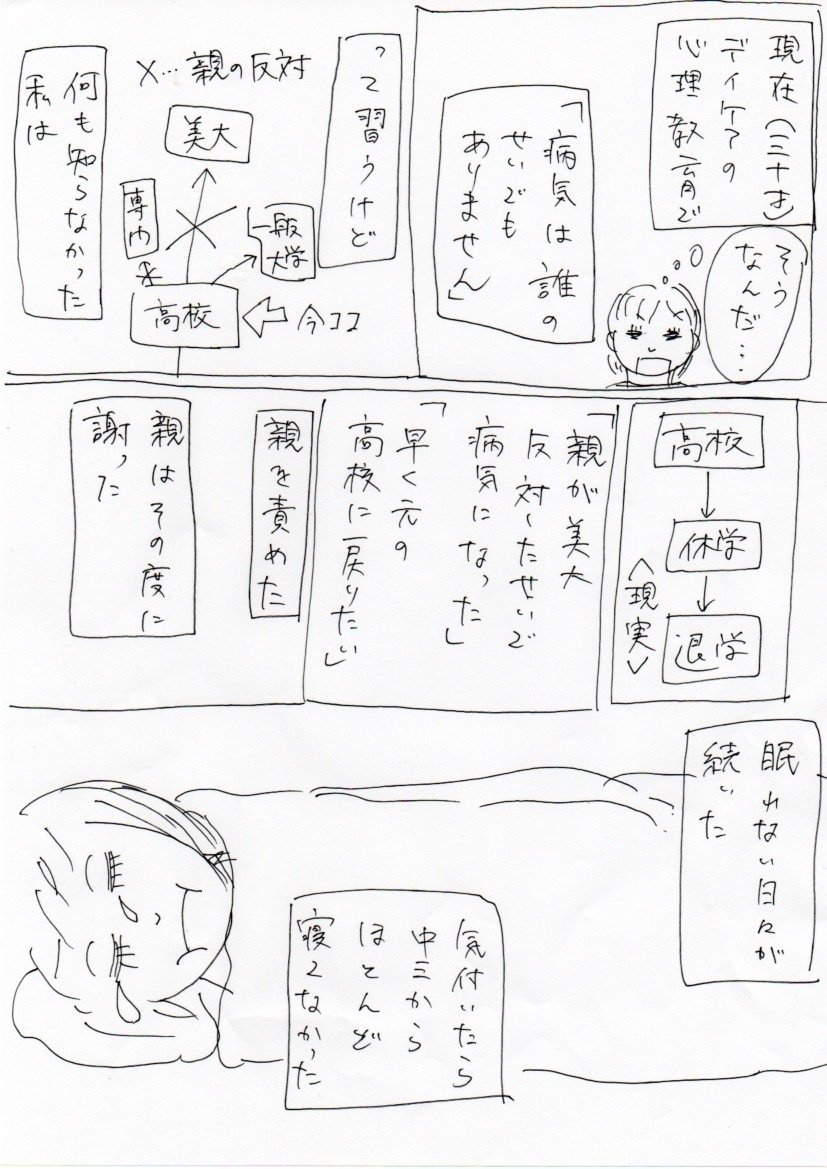 現在(三十才)
デイケアの
心理教育で
そう
なんだ…
「病気は誰の
せいでも
ありません」
って習うけど
×…親の反対
美大
専門
一般
大学
高校
今ココ
何も知らなかった
私は
高校
休学
退学
<現実>
「親が美大
反対したせいで
病気になった」
「早く元の
高校に戻りたい」
親を責めた
親はその度に
謝った
眠れない日々が
続いた
気付いたら
中三から
ほとんど
寝てなかった